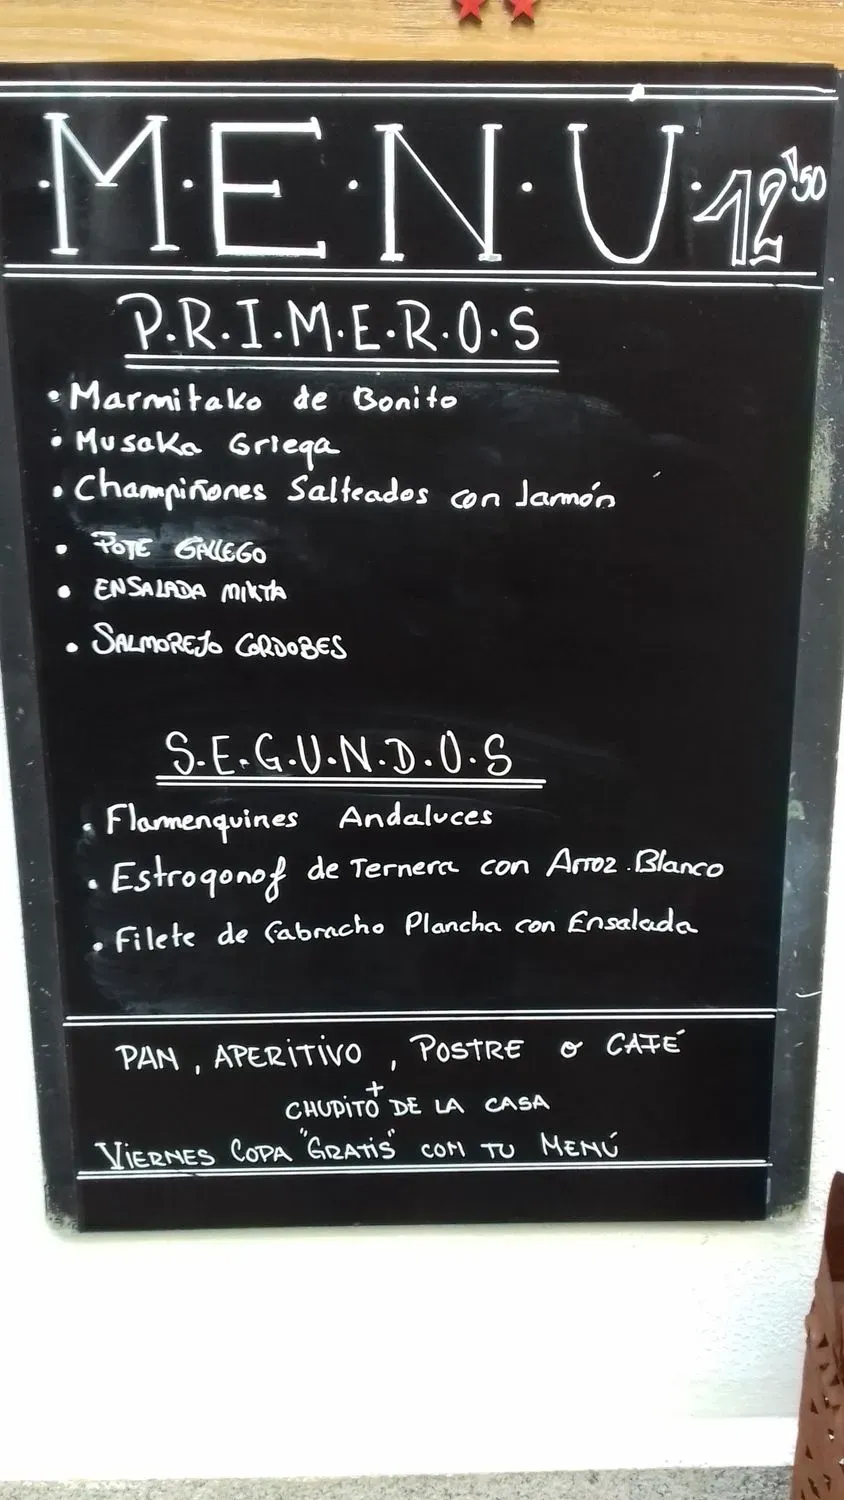 ·M·E·N·Ú·12'50
P.R.I.M.E.R.O.S
• Marmitako de Bonito
• Musaka Griega
• Champiñones Salteados con Jamón
• POTE GALLEGO
• ENSALADA MIXTA
• SALMOREJO CORDOBES
S.E.G.U.N.D.O.S
• Flamenquines Andaluces
• Estrogonof de Ternera con Arroz Blanco
• Filete de Cabracho Plancha con Ensalada
PAN, APERITIVO, POSTRE o CAFÉ
+
CHUPITO DE LA CASA
VIERNES COPA "GRATIS" CON TU MENÚ